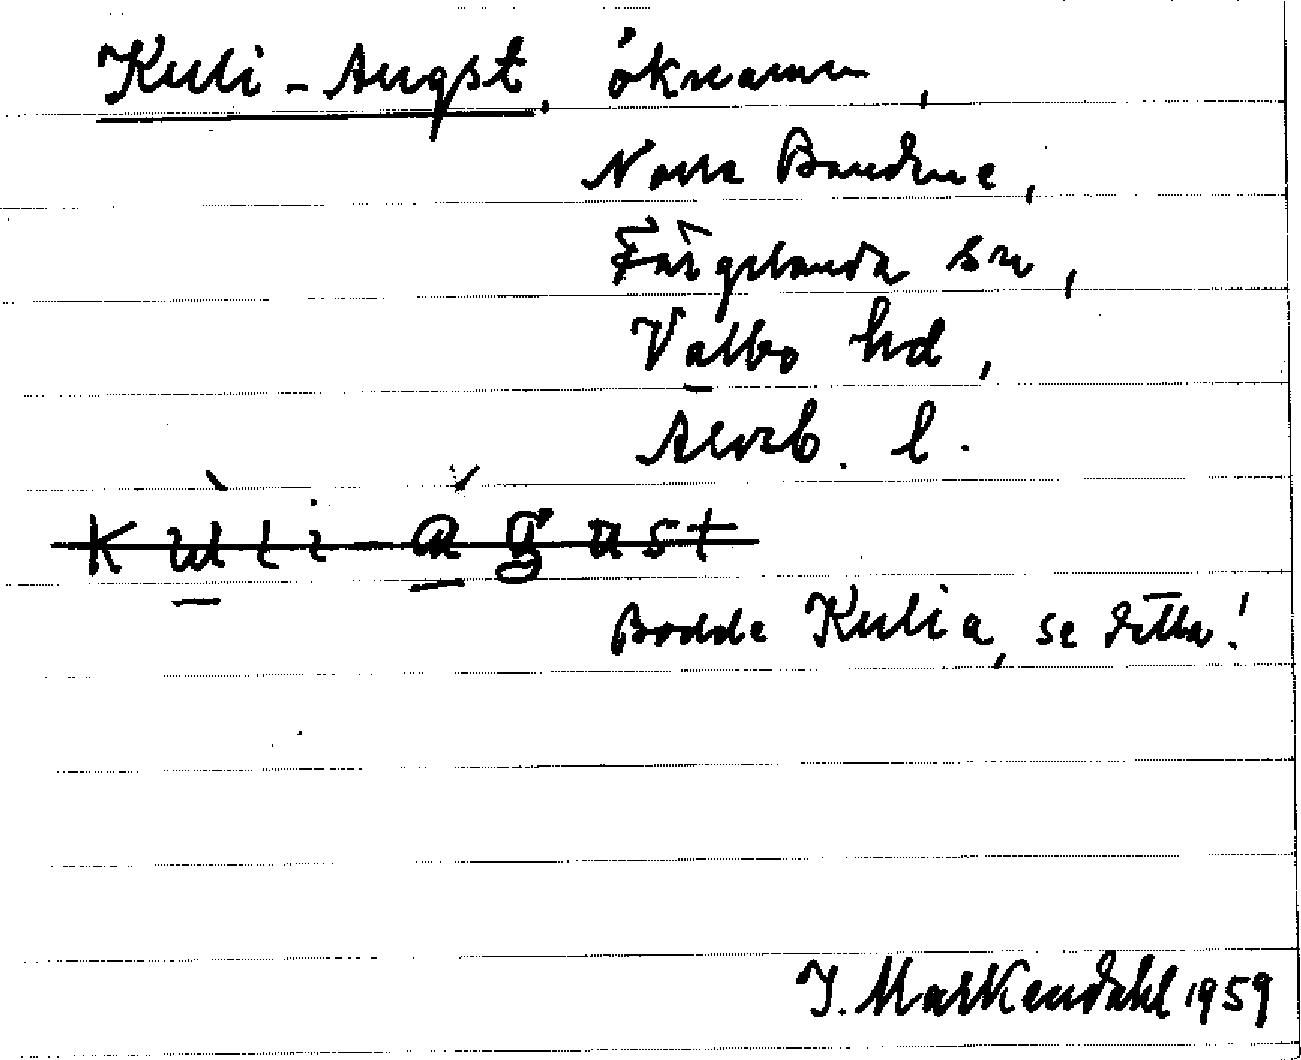 Kuli-Augst, öknamn,
Norra Bandene,
Färgelanda sn,
Valbo hd,
Älvsb. l.
Kùli ăgust
Bodde Kulia, se detta!
J. Markendahl 1959